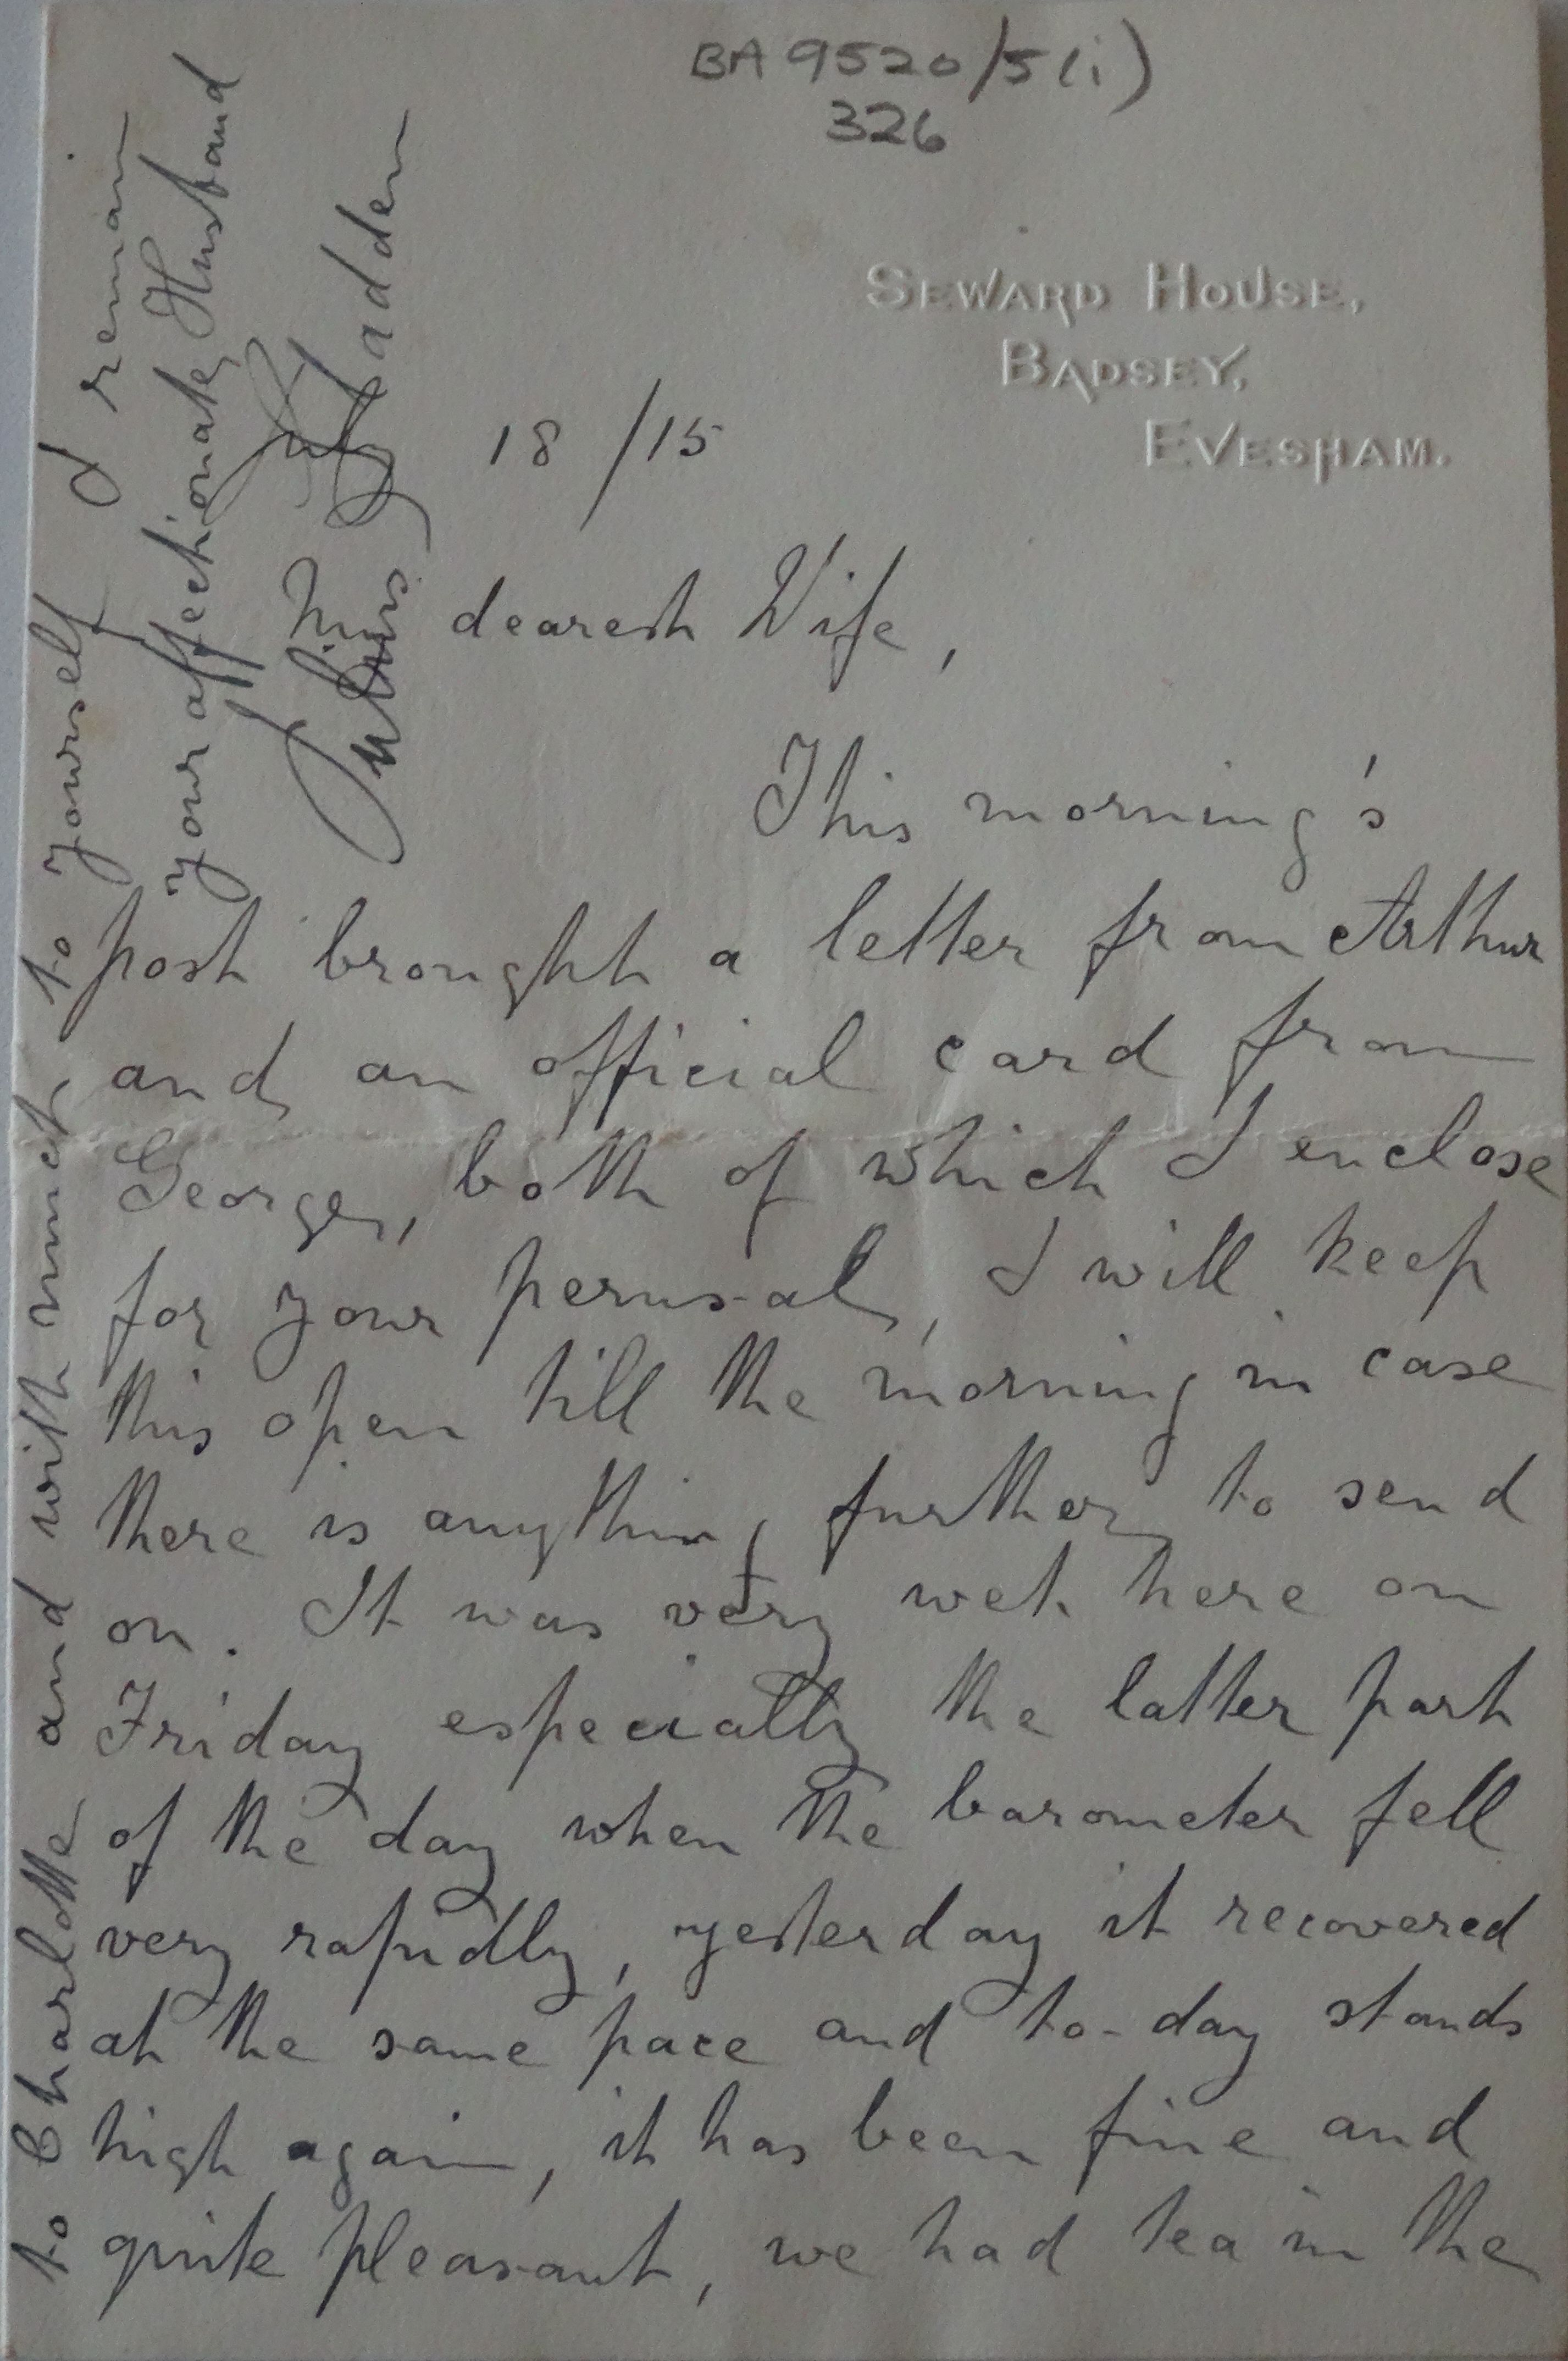 BA 9520/5(i)
326
SEWARD HOUSE,
BADSEY,
EVESHAM.
July 18/15
My dearest Wife,
This morning's
post brought a letter from Arthur
and an official card from
George, both of which I enclose
for your perusal, I will keep
this open till the morning in case
there is anything further to send
on. It was very wet here on
Friday especially the latter part
of the day when the barometer fell
very rapidly, yesterday it recovered
at the same pace and to-day stands
high again, it has been fine and
quite pleasant, we had tea in the
to Charlotte and with much to yourself I remain
your affectionate Husband
Julius Sladden